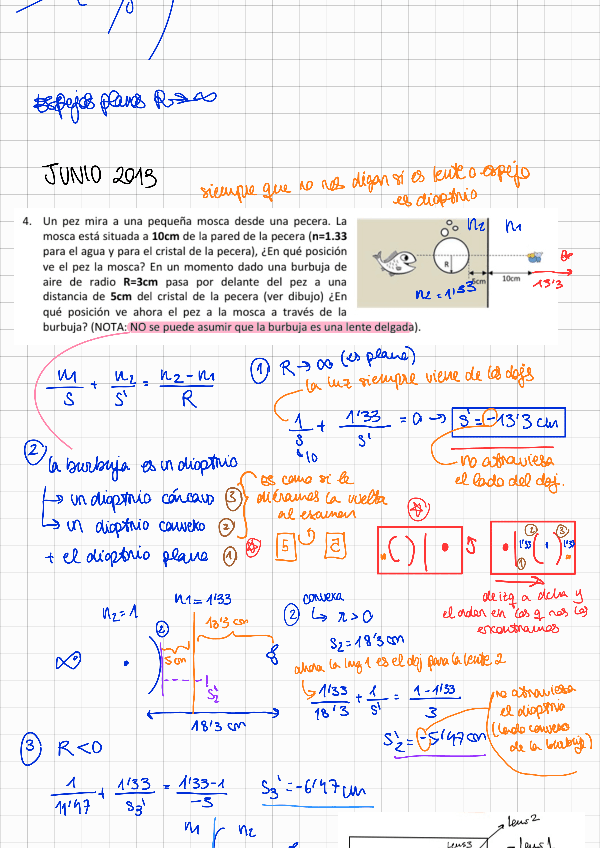 Espejos planos R→∞
JUNIO 2013
siempre que no nos digan si es lente o espejo
es dioptrio
4. Un pez mira a una pequeña mosca desde una pecera. La
mosca está situada a 10cm de la pared de la pecera (n=1.33
para el agua y para el cristal de la pecera), ¿En qué posición
ve el pez la mosca? En un momento dado una burbuja de
aire de radio R=3cm pasa por delante del pez a una
distancia de 5cm del cristal de la pecera (ver dibujo) ¿En
qué posición ve ahora el pez a la mosca a través de la
burbuja? (NOTA: NO se puede asumir que la burbuja es una lente delgada).
n2 n1
R
5cm 10cm
13'3
n2 = 1'33
n1/S + n2/S' = n2-n1/R
① R→∞ (es plano)
la luz siempre viene de los dojs
1/S + 1'33/S' = 0 → S' = -13'3 cm
10
no atraviesa
el lado del doj.
② la burbuja es un dioptrio
↳ un dioptrio cóncavo ③
↳ un dioptrio convexo ②
+ el dioptrio plano ①
es como si le
diéramos la vuelta
al examen
5
② ③
1'33 1'33
①
de izq a dcha y
el orden en los q nos los
encontramos
n2=1
n1=1'33
②
5cm
18'3 cm
S2'
18'3 cm
② convexa
↳ r>0
S2=18'3cm
ahora la luz 1 es el doj para la lente 2
1'33/18'3 + 1/S' = 1-1'33/3
S2' = -5'47cm
no atraviesa
el dioptrio
(lado convexo
de la burbuja)
③ R<0
1/11'47 + 1'33/S3' = 1'33-1/-3
S3' = -6'47cm
n1 n2
lens2
lens3
lens1